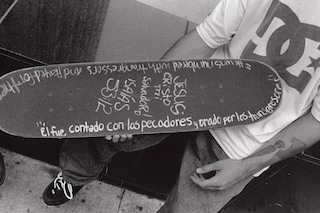 "He was numbered with transgressors and Prayed for the
JESUS
CRISTO
Salvador!
ISAIAS
53:12
"El fue, contado con los pecadores y orado por los transgresores"
DC